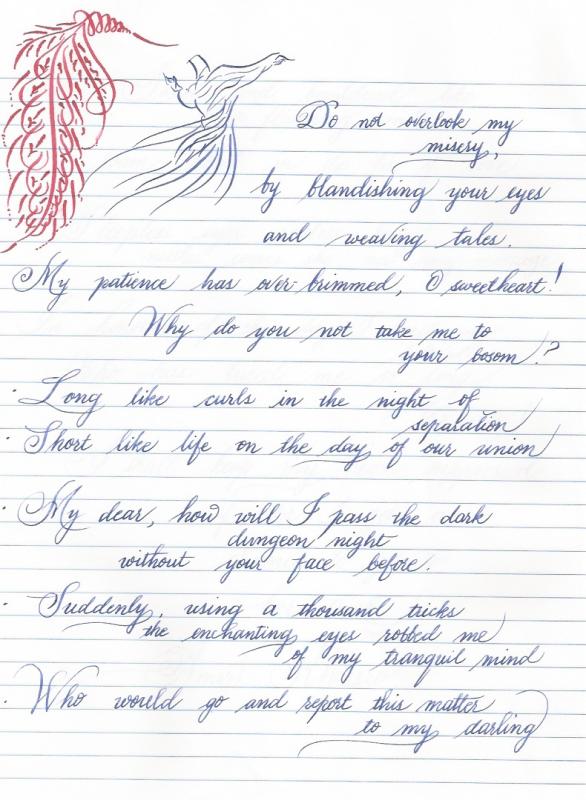 Do not overlook my
misery,
by blandishing your eyes
and weaving tales.
My patience has over-brimmed, O sweetheart!
Why do you not take me to
your bosom!?
Long like curls in the night of
separation
Short like life on the day of our union
My dear, how will I pass the dark
dungeon night
without your face before.
Suddenly, using a thousand tricks
the enchanting eyes robbed me
of my tranquil mind
Who would go and report this matter
to my darling